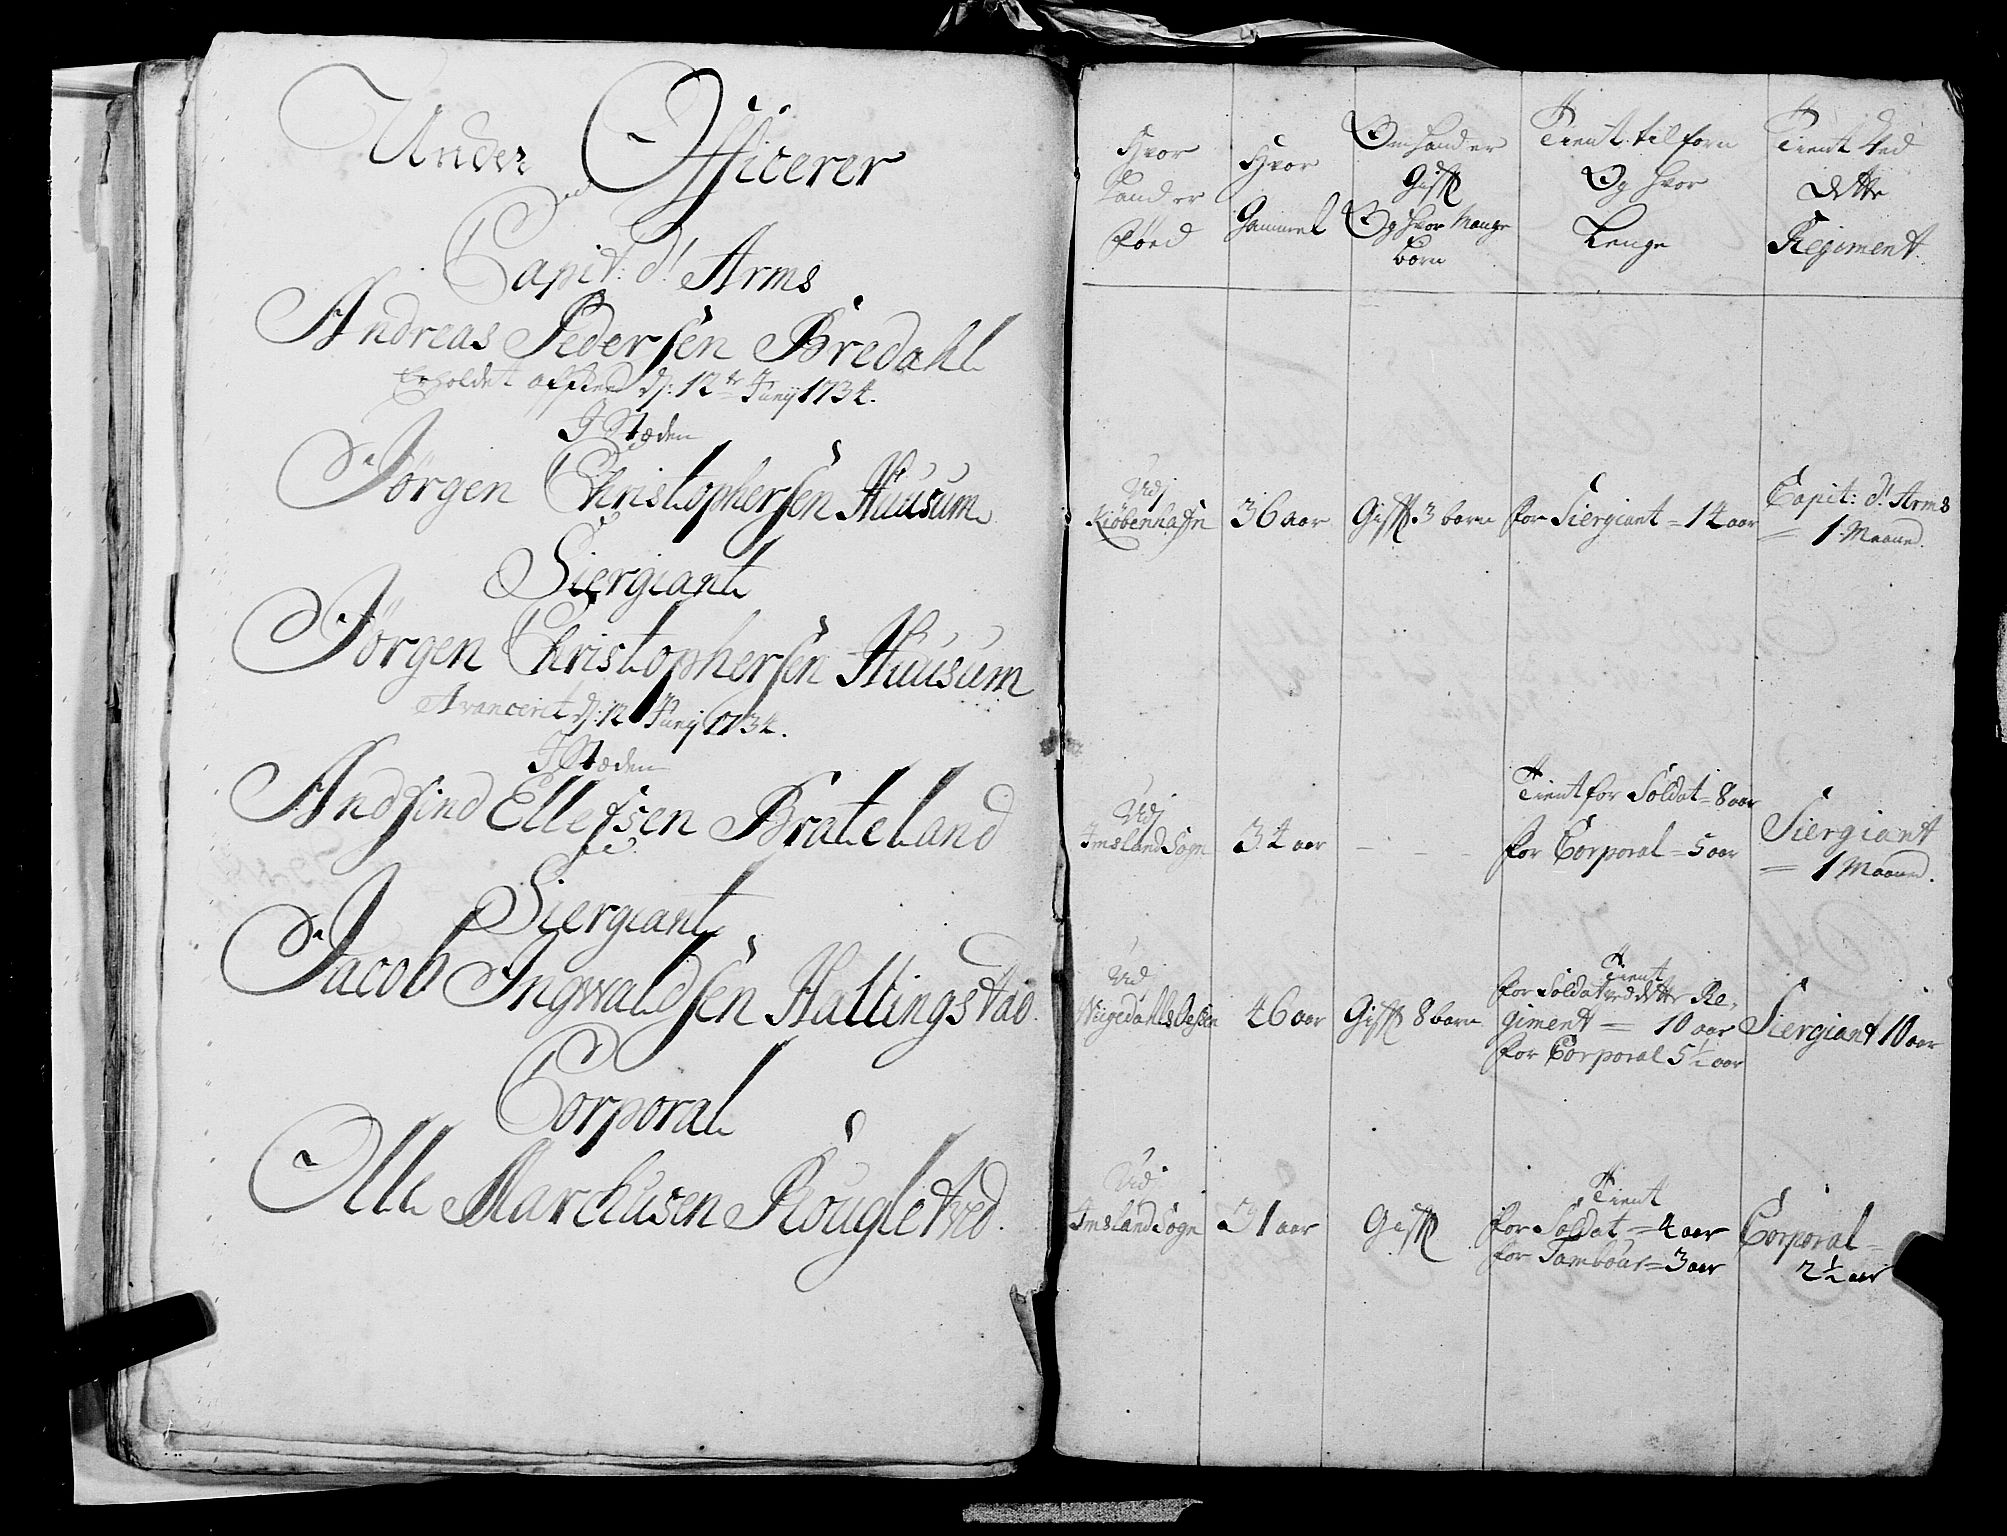 Under Officerer
Capit: d' Arms
Andreas Pedersen Bredahl
Erholdet afskeed d: 12te Junij 1734.
I Stæden
Jørgen Christophersen Huusum
Siergiant
Jørgen Christophersen Huusum
Avanceret d: 12 Junij 1734.
I Stæden
Andfind Ellefsen Brateland
Siergiant
Jacob Ingwaldsen Hallingstad.
Corporal
Olle Marchusen Rougletved.
Hvor
hand er
føed
Hvor
Gammel
Om hand er
Gift
Og hvor Mange
børn
Tient tilforn
Og hvor
Lenge
Tient Ved
dette
Regiment.
Udj
Kiøbenhafn
36 aar
Gift 3 børn
for Siergiant = 14 aar
Capit: d' Arms
= 1 Maaned.
Udj
Imsland Sogn
34 aar
- - -
Tient for Soldat = 8 aar
for Corporal = 5 aar
Siergiant
= 1 Maaned.
Ud
46 aar
Gift 8 børn
Tient
for Soldat ved dette Re-
giment = 10 aar
for Corporal 5 1/2 aar
Siergiant 10 aar
Udj
Imsland Sogn
31 aar
Gift
Tient
for Soldat = 4 aar
for Tambour = 3 aar
Corporal =
2 1/2 aar